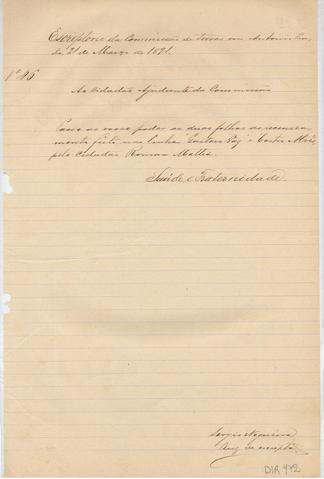 Escriptorio da Commissão de terras em Antonio Pra-
do, 21 de Março de 1891.
Nº 46
Ao cidadão Ajudante da Commissão
Passo as vossas mãos as duas folhas de recensea-
mento feito nas linhas
pelo cidadão Romon Matta.
Saúde e Fraternidade.
Sergio Nogueira
Aux. de escripta
DIR 472